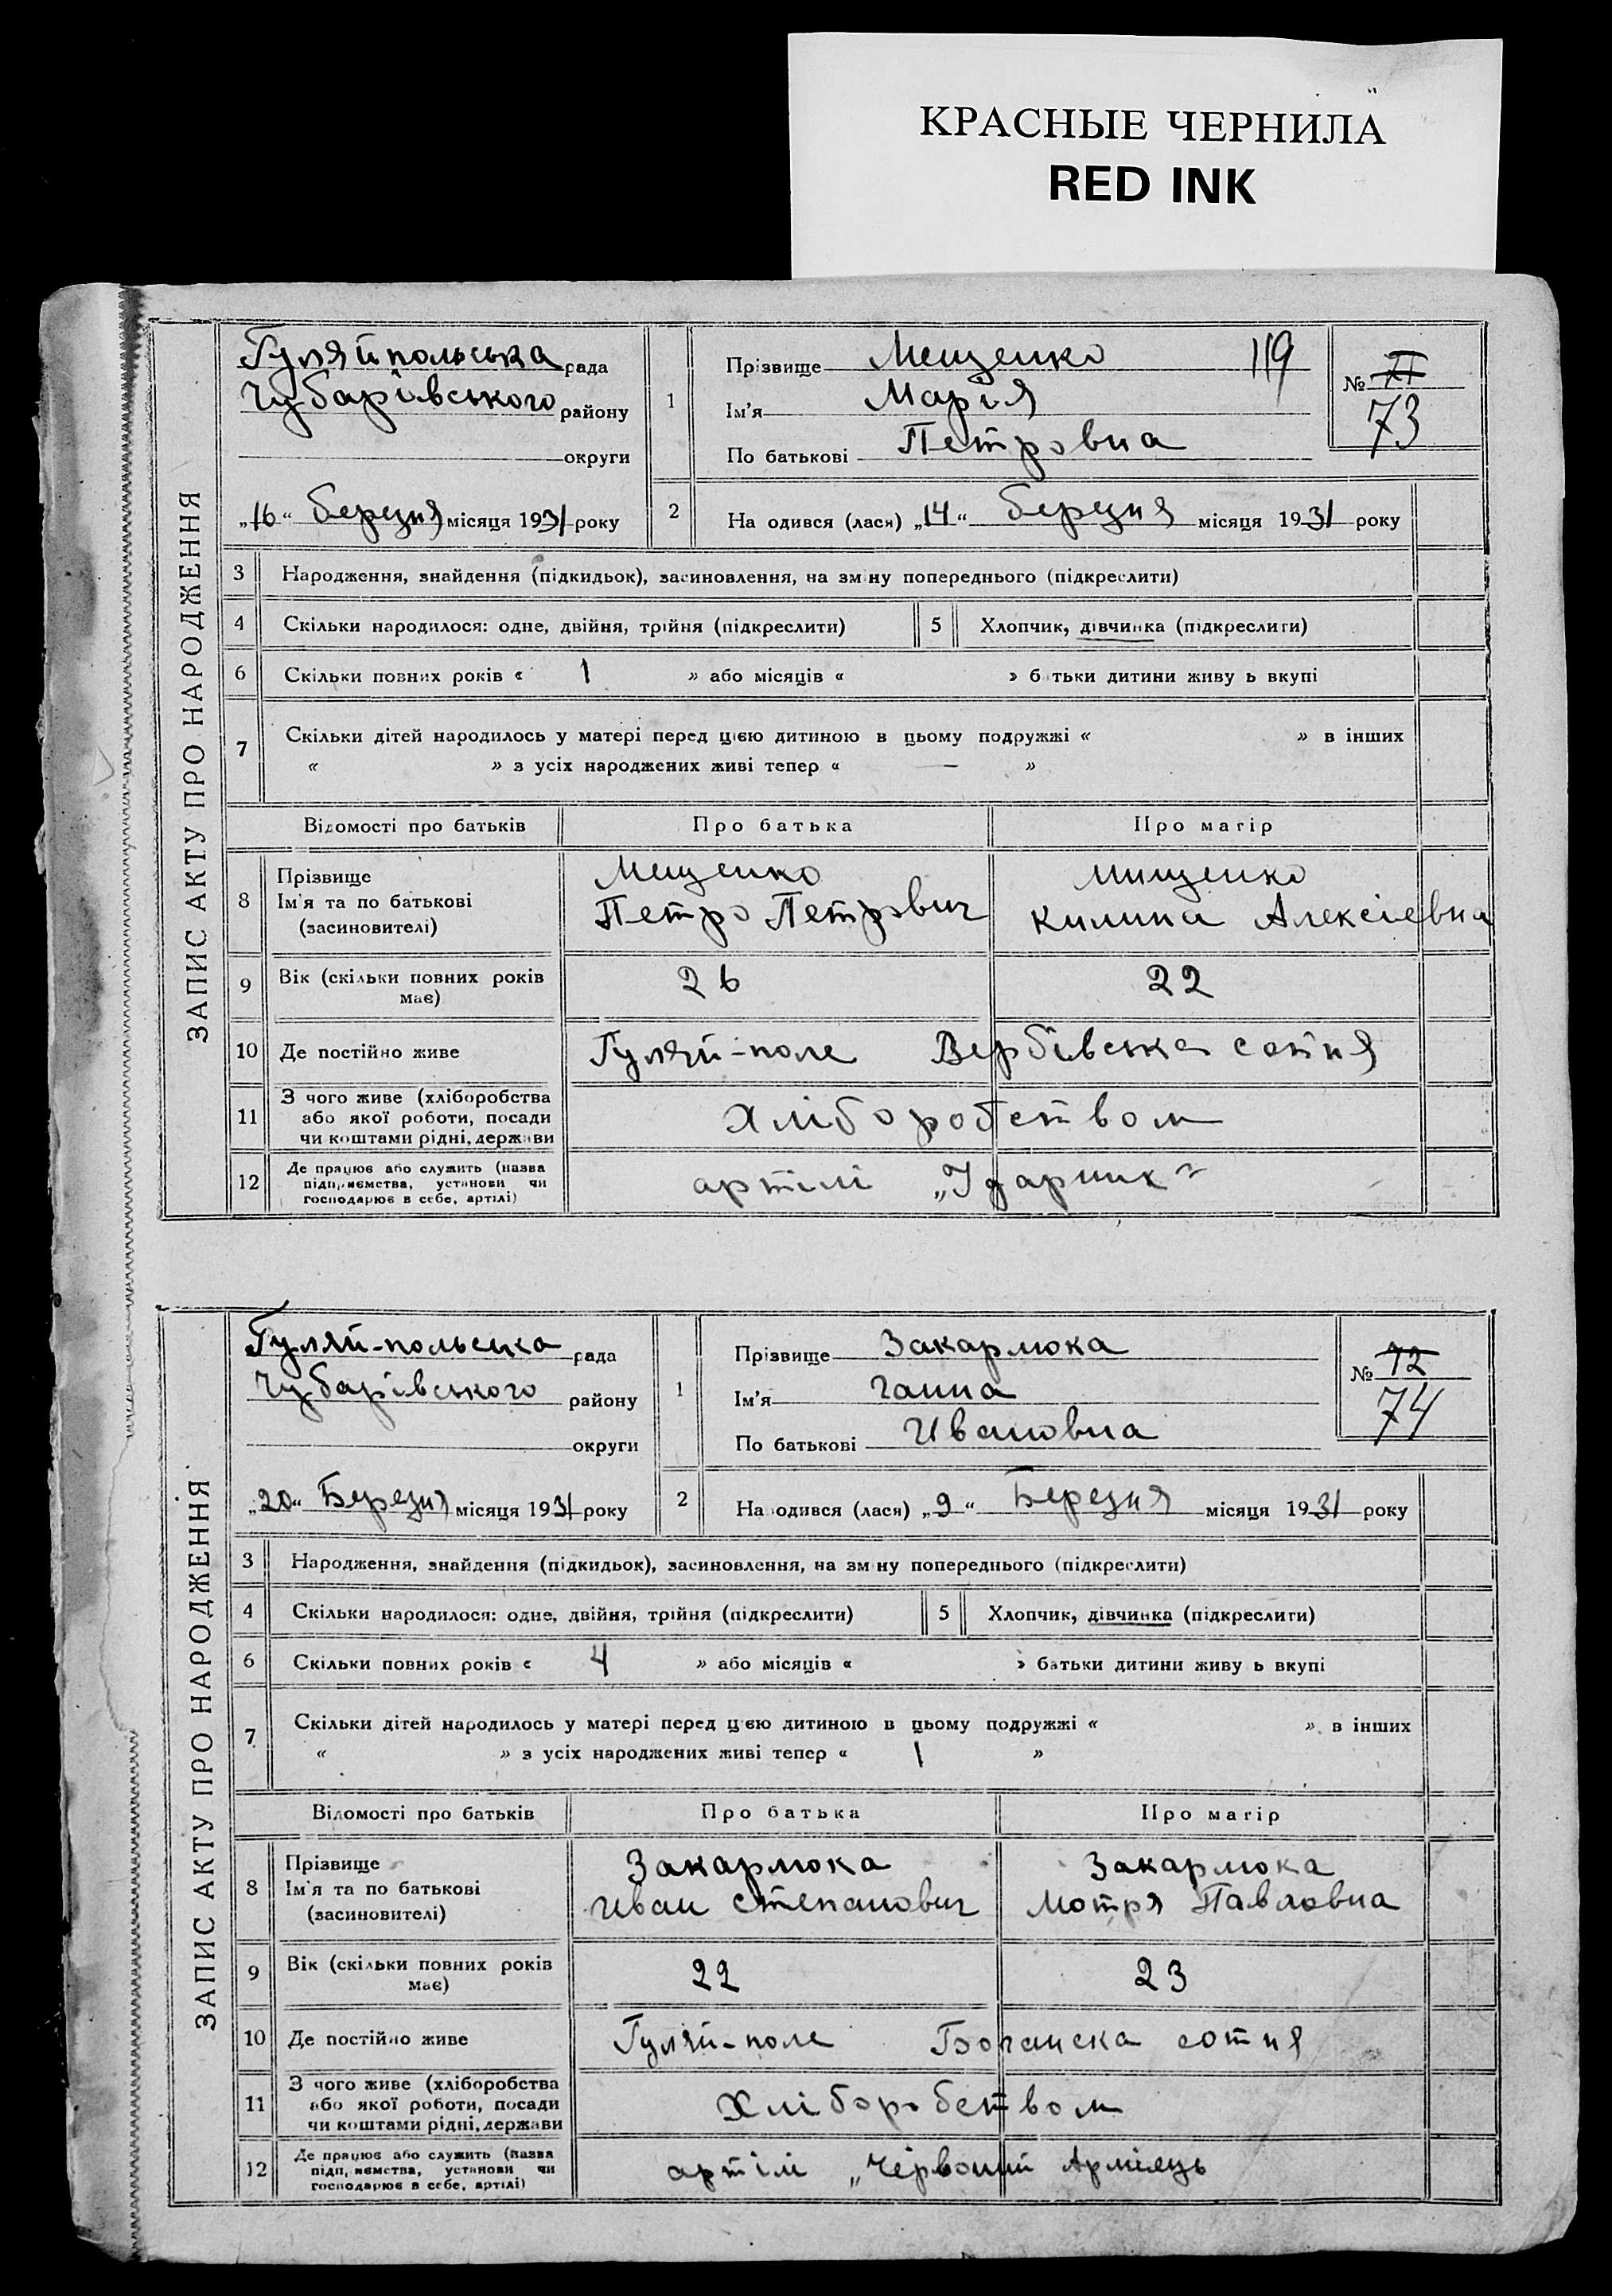 КРАСНЫЕ ЧЕРНИЛА
RED INK
ЗАПИС АКТУ ПРО НАРОДЖЕННЯ
Гуляйпольська рада
Чубарівського району
округи
„16“ березня місяця 1931 року
1
Прізвище Мещенко 119
Ім'я Марія
По батькові Петровна
№ 71
73
2 На одився (лася) „14“ березня місяця 1931 року
3 Народження, знайдення (підкидьок), засиновлення, на зм ну попереднього (підкреслити)
4 Скільки народилося: одне, двійня, трійня (підкреслити) 5 Хлопчик, дівчинка (підкреслити)
6 Скільки повних років « 1 » або місяців « » б тьки дитини живу ь вкупі
7 Скільки дітей народилось у матері перед цією дитиною в цьому подружжі « » в інших
« » з усіх народжених живі тепер « — »
Відомості про батьків Про батька Про матір
8 Прізвище
Ім'я та по батькові
(засиновителі)
Мещенко
Петро Петрович
Мищенко
Килина Алексіевна
9 Вік (скільки повних років
має)
26 22
10 Де постійно живе Гуляй-поле Вербівська сотня
11 З чого живе (хліборобства
або якої роботи, посади
чи коштами рідні, держави
Хліборобством
12 Де працює або служить (назва
підприємства, установи чи
господарює в себе, артілі)
артілі „Ударник“
ЗАПИС АКТУ ПРО НАРОДЖЕННЯ
Гуляй-польська рада
Чубарівського району
округи
„20“ Березня місяця 1931 року
1
Прізвище Закарлюка
Ім'я Ганна
По батькові Ивановна
№ 72
74
2 На одився (лася) „9“ Березня місяця 1931 року
3 Народження, знайдення (підкидьок), засиновлення, на зм ну попереднього (підкреслити)
4 Скільки народилося: одне, двійня, трійня (підкреслити) 5 Хлопчик, дівчинка (підкреслити)
6 Скільки повних років « 4 » або місяців « » батьки дитини живу ь вкупі
7 Скільки дітей народилось у матері перед цією дитиною в цьому подружжі « » в інших
« » з усіх народжених живі тепер « 1 »
Відомості про батьків Про батька Про матір
8 Прізвище
Ім'я та по батькові
(засиновителі)
Закарлюка
Иван Степанович
Закарлюка
Мотря Павловна
9 Вік (скільки повних років
має)
22 23
10 Де постійно живе Гуляй-поле Бочанска сотня
11 З чого живе (хліборобства
або якої роботи, посади
чи коштами рідні, держави
Хліборобством
12 Де працює або служить (назва
підприємства, установи чи
господарює в себе, артілі)
артілі „Червоний Армієць